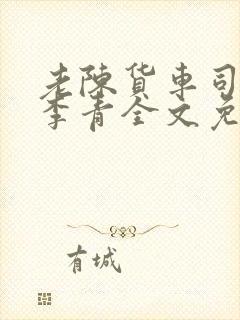 老陈货车司
李青全文免
有城